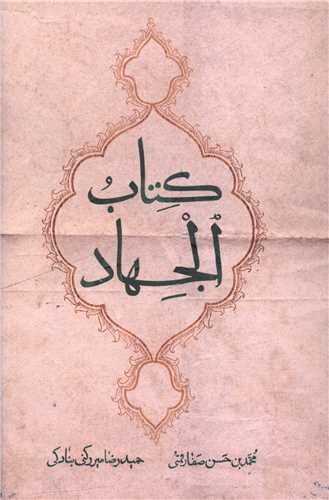 كِتابُ
الجْهِاد
محمّد بن حسن صفار قمی حمیدرضا میررکنی بنادکی